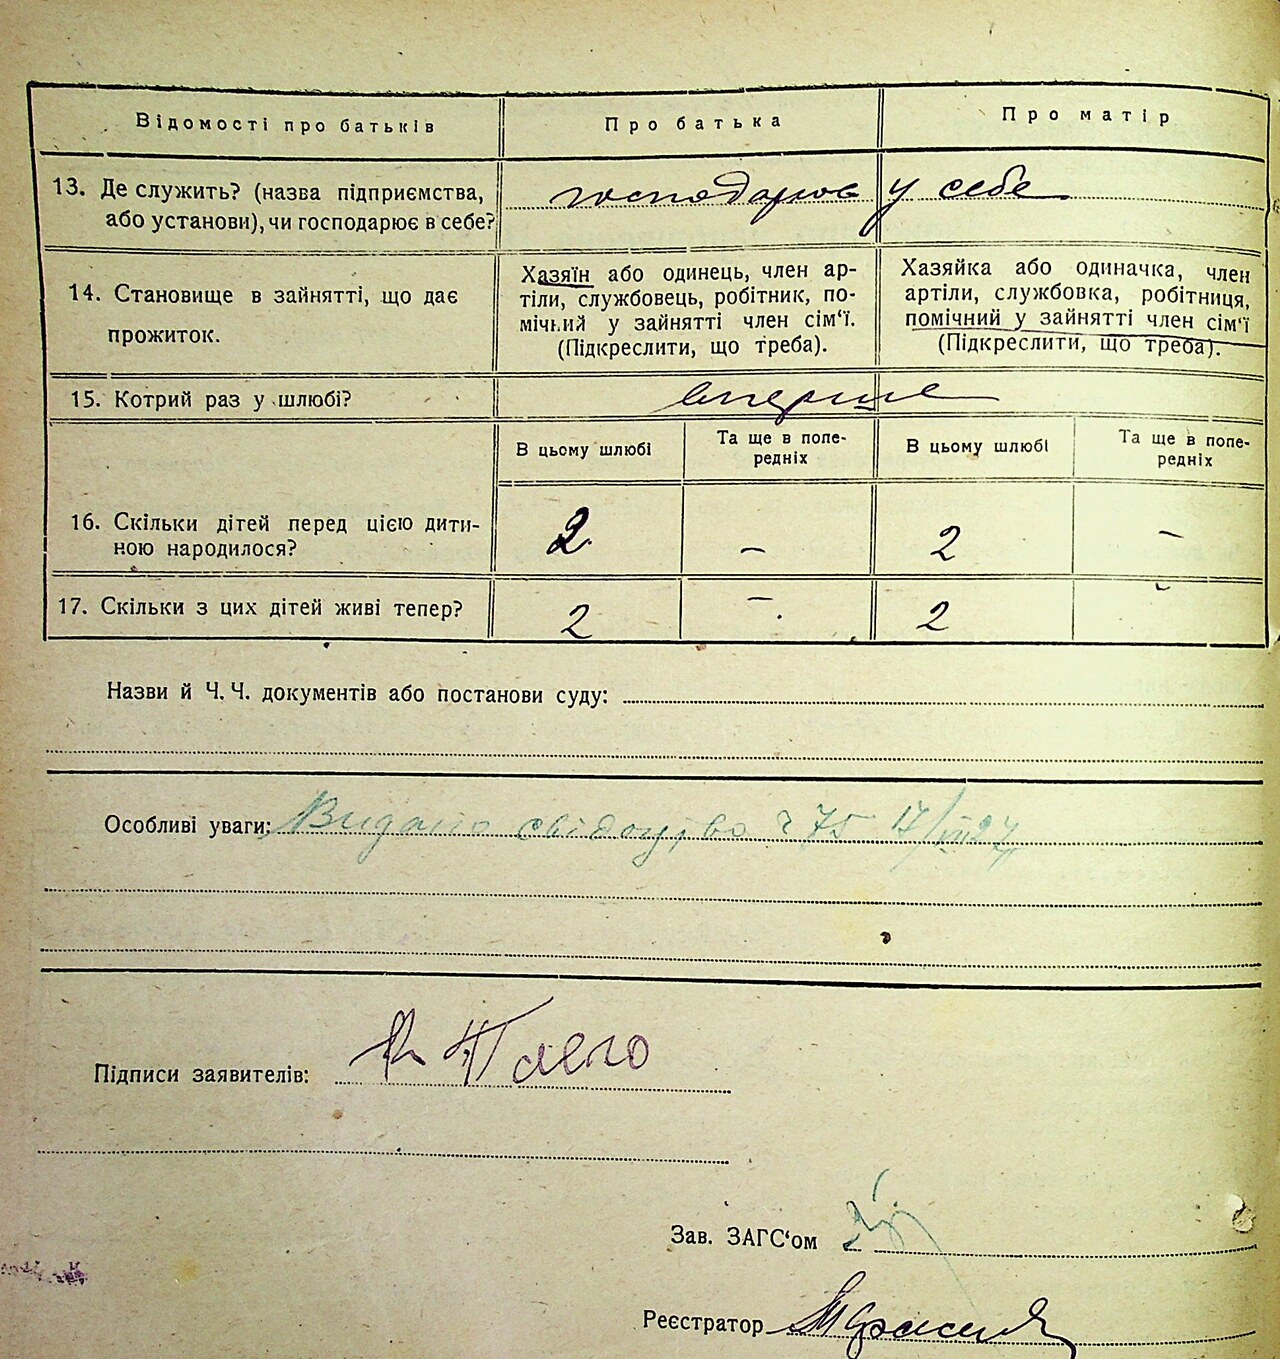 Відомості про батьків
Про батька
Про матір
13. Де служить? (назва підприємства,
або установи), чи господарює в себе?
господарює у себе
14. Становище в зайнятті, що дає
прожиток.
Хазяїн або одинець, член ар-
тіли, службовець, робітник, по-
мічний у зайнятті член сім'ї.
(Підкреслити, що треба).
Хазяйка або одиначка, член
артіли, службовка, робітниця,
помічний у зайнятті член сім'ї
(Підкреслити, що треба).
15. Котрий раз у шлюбі?
вперше
В цьому шлюбі
Та ще в попе-
редніх
В цьому шлюбі
Та ще в попе-
редніх
16. Скільки дітей перед цією дити-
ною народилося?
2 – 2 –
17. Скільки з цих дітей живі тепер?
2 – 2 –
Назви й Ч. Ч. документів або постанови суду:
Особливі уваги: Видано свідоцтво ч 75 17/VIII 27
Підписи заявителів:
Зав. ЗАГС'ом
Реєстратор